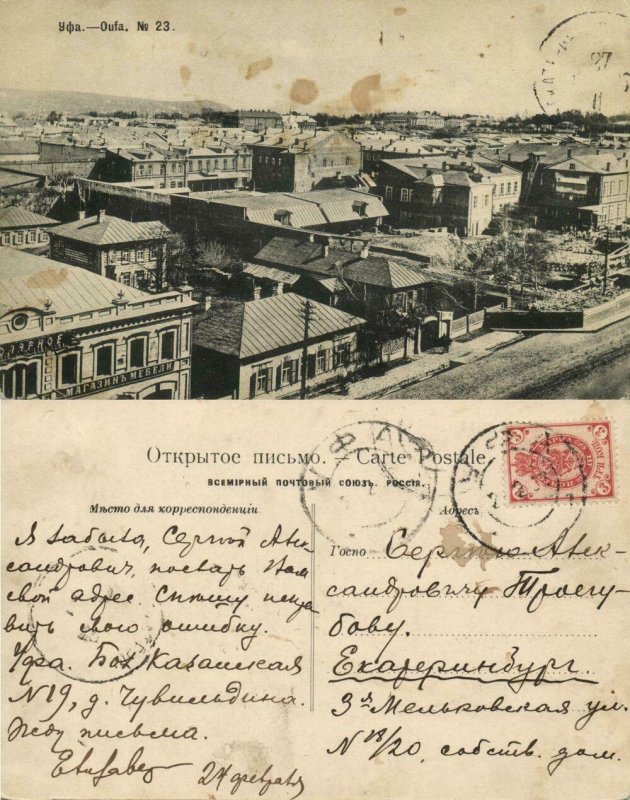 Уфа.—Oufa. № 23.
МАГАЗИНЪ МЕБЕЛИ
Открытое письмо. — Carte Postale.
ВСЕМІРНЫЙ ПОЧТОВЫЙ СОЮЗЪ. РОССІЯ.
Мѣсто для корреспонденціи
Я забыла, Сергѣй Алек-
сандрович, послать Вам
свой адрес. Спѣшу испра
вить мою ошибку.
Уфа. Бол. Казанская
N 19, д. Чувильдина.
Жду письма.
Elisabet
24 февраля
Адресъ
Госпо Сергѣю Алек-
сандровичу Трегу-
бову.
Екатеринбург
3я Мельковская ул.
N 18/20, собств. дом.